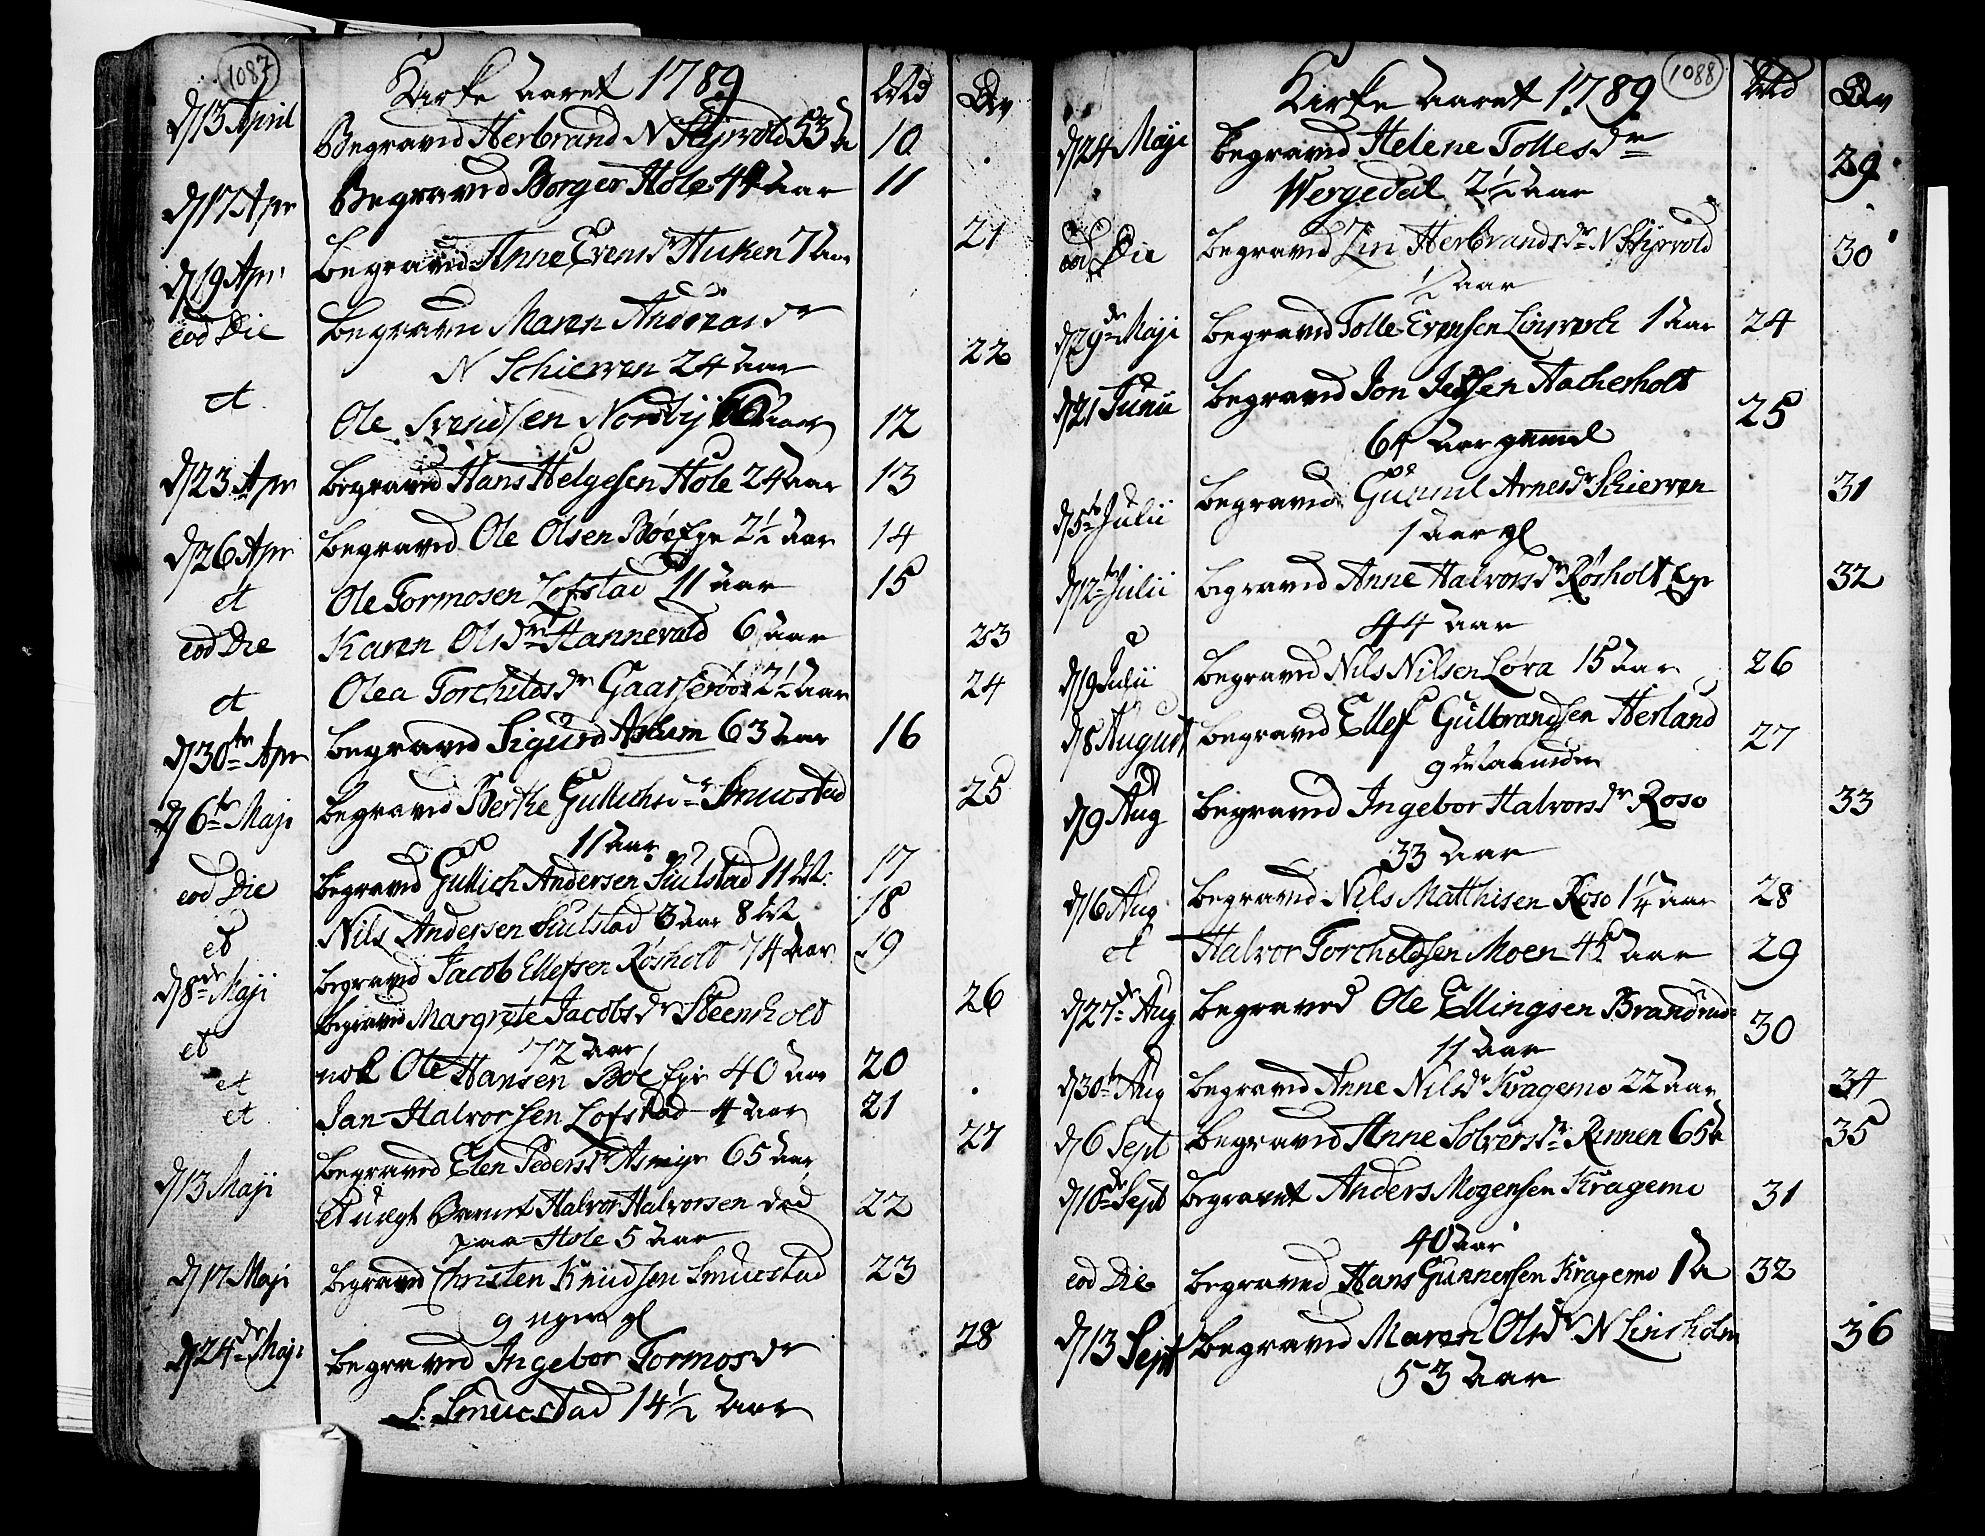 1087
Kirke Aaret 1789 Md Qv
d 13 April Begraved Herbrand N Styrvold 53 A 10
d 17 Apr Begraved Borger Hole 44 Aar 11
d 19 Apr Begraved Anne Evens dr Huken 7 Aar 21
eod Die Begraved Maren Andreas dr
N Schierven 24 Aar 22
et Ole Svendsen Nordby Aar 12
d 23 Apr Begraved Hans Helgesen Hole 24 Aar 13
d 26 Apr Begraved Ole Olsen Bøe Eje 2½ Aar 14
et Ole Tormosen Lofstad 11 Aar 15
eod Die Karen Ols dr Hannevold 6 Aar 23
et Olea Torchilds dr 2½ Aar 24
d 30te Apr Begraved Sigurd Askum 63 Aar 16
d 6te Maji Begraved Berthe Gullichs dr Smucstad 25
11 Aar
eod Die Begraved Gullich Andersen Siulstad 11 M. 17
et Nils Andersen Siulstad 3 Aar 8 M 18
d 8de Maji Begraved Jacob Ellefsen Røsholt 74 Aar 19
et Begraved Margrete Jacobs dr Steensholt 26
72 Aar
et nok Ole Hansen Bøe Eje 40 Aar 20
et Jan Halvorsen Lofstad 4 Aar 21
d 13 Maji Begraved Elen Peders dr Asmyr 65 Aar 27
et Halvor Halvorsen død 22
paa Hole 5 Aar
d 17 Maji Begraved Christen Knudsen Smucstad 23
9 uger gl
d 24de Maji Begraved Ingebor Tormos dr 28
S. Smucstad 14½ Aar
1088
Kirke Aaret 1789 Md Qv
d 24 Maji Begraved Helene Tolles dr 29
Wergedal 2½ Aar
eod Die Begraved Lin Herbrands dr N Styrvold 30
½ Aar
d 29de Maji Begraved Tolle Evensen Linverk 1 Aar 24
d 21 Junii Begraved Jon Aacherholt 25
64 Aar gammel
d 5te Julii Begraved Gunnil Arnes dr Schierven 31
1 Aar gl
d 12te Julii Begraved Anne Halvors dr Røsholt Eje 32
44 Aar
d 19 Julii Begraved Nils Nilsen Løra 15 Aar 26
d 8 August Begraved Ellef Gulbrandsen Herland 27
9 Maaneder
d 9 Aug Begraved Ingebor Halvors dr Roso 33
33 Aar
d 16 Aug Begraved Nils Matthisen Roso 1¼ Aar 28
et Halvor Torchildsen Moen Aar 29
d 27de Aug Begraved Ole Ellingsen Brandrud 30
11 Aar
d 30te Aug Begraved Anne Nils dr Kragemo 22 Aar 34
d 6 Sept Begraved Anne Solvers dr Rinnen 65 A 35
d 10de Sept Begravet Anders Mogensen Kragemo 31
40 Aar
eod Die Begraved Hans Gunnersen Kragemo 1 A 32
d 13 Sept Begraved Maren Ols dr N Linsholm 36
53 Aar